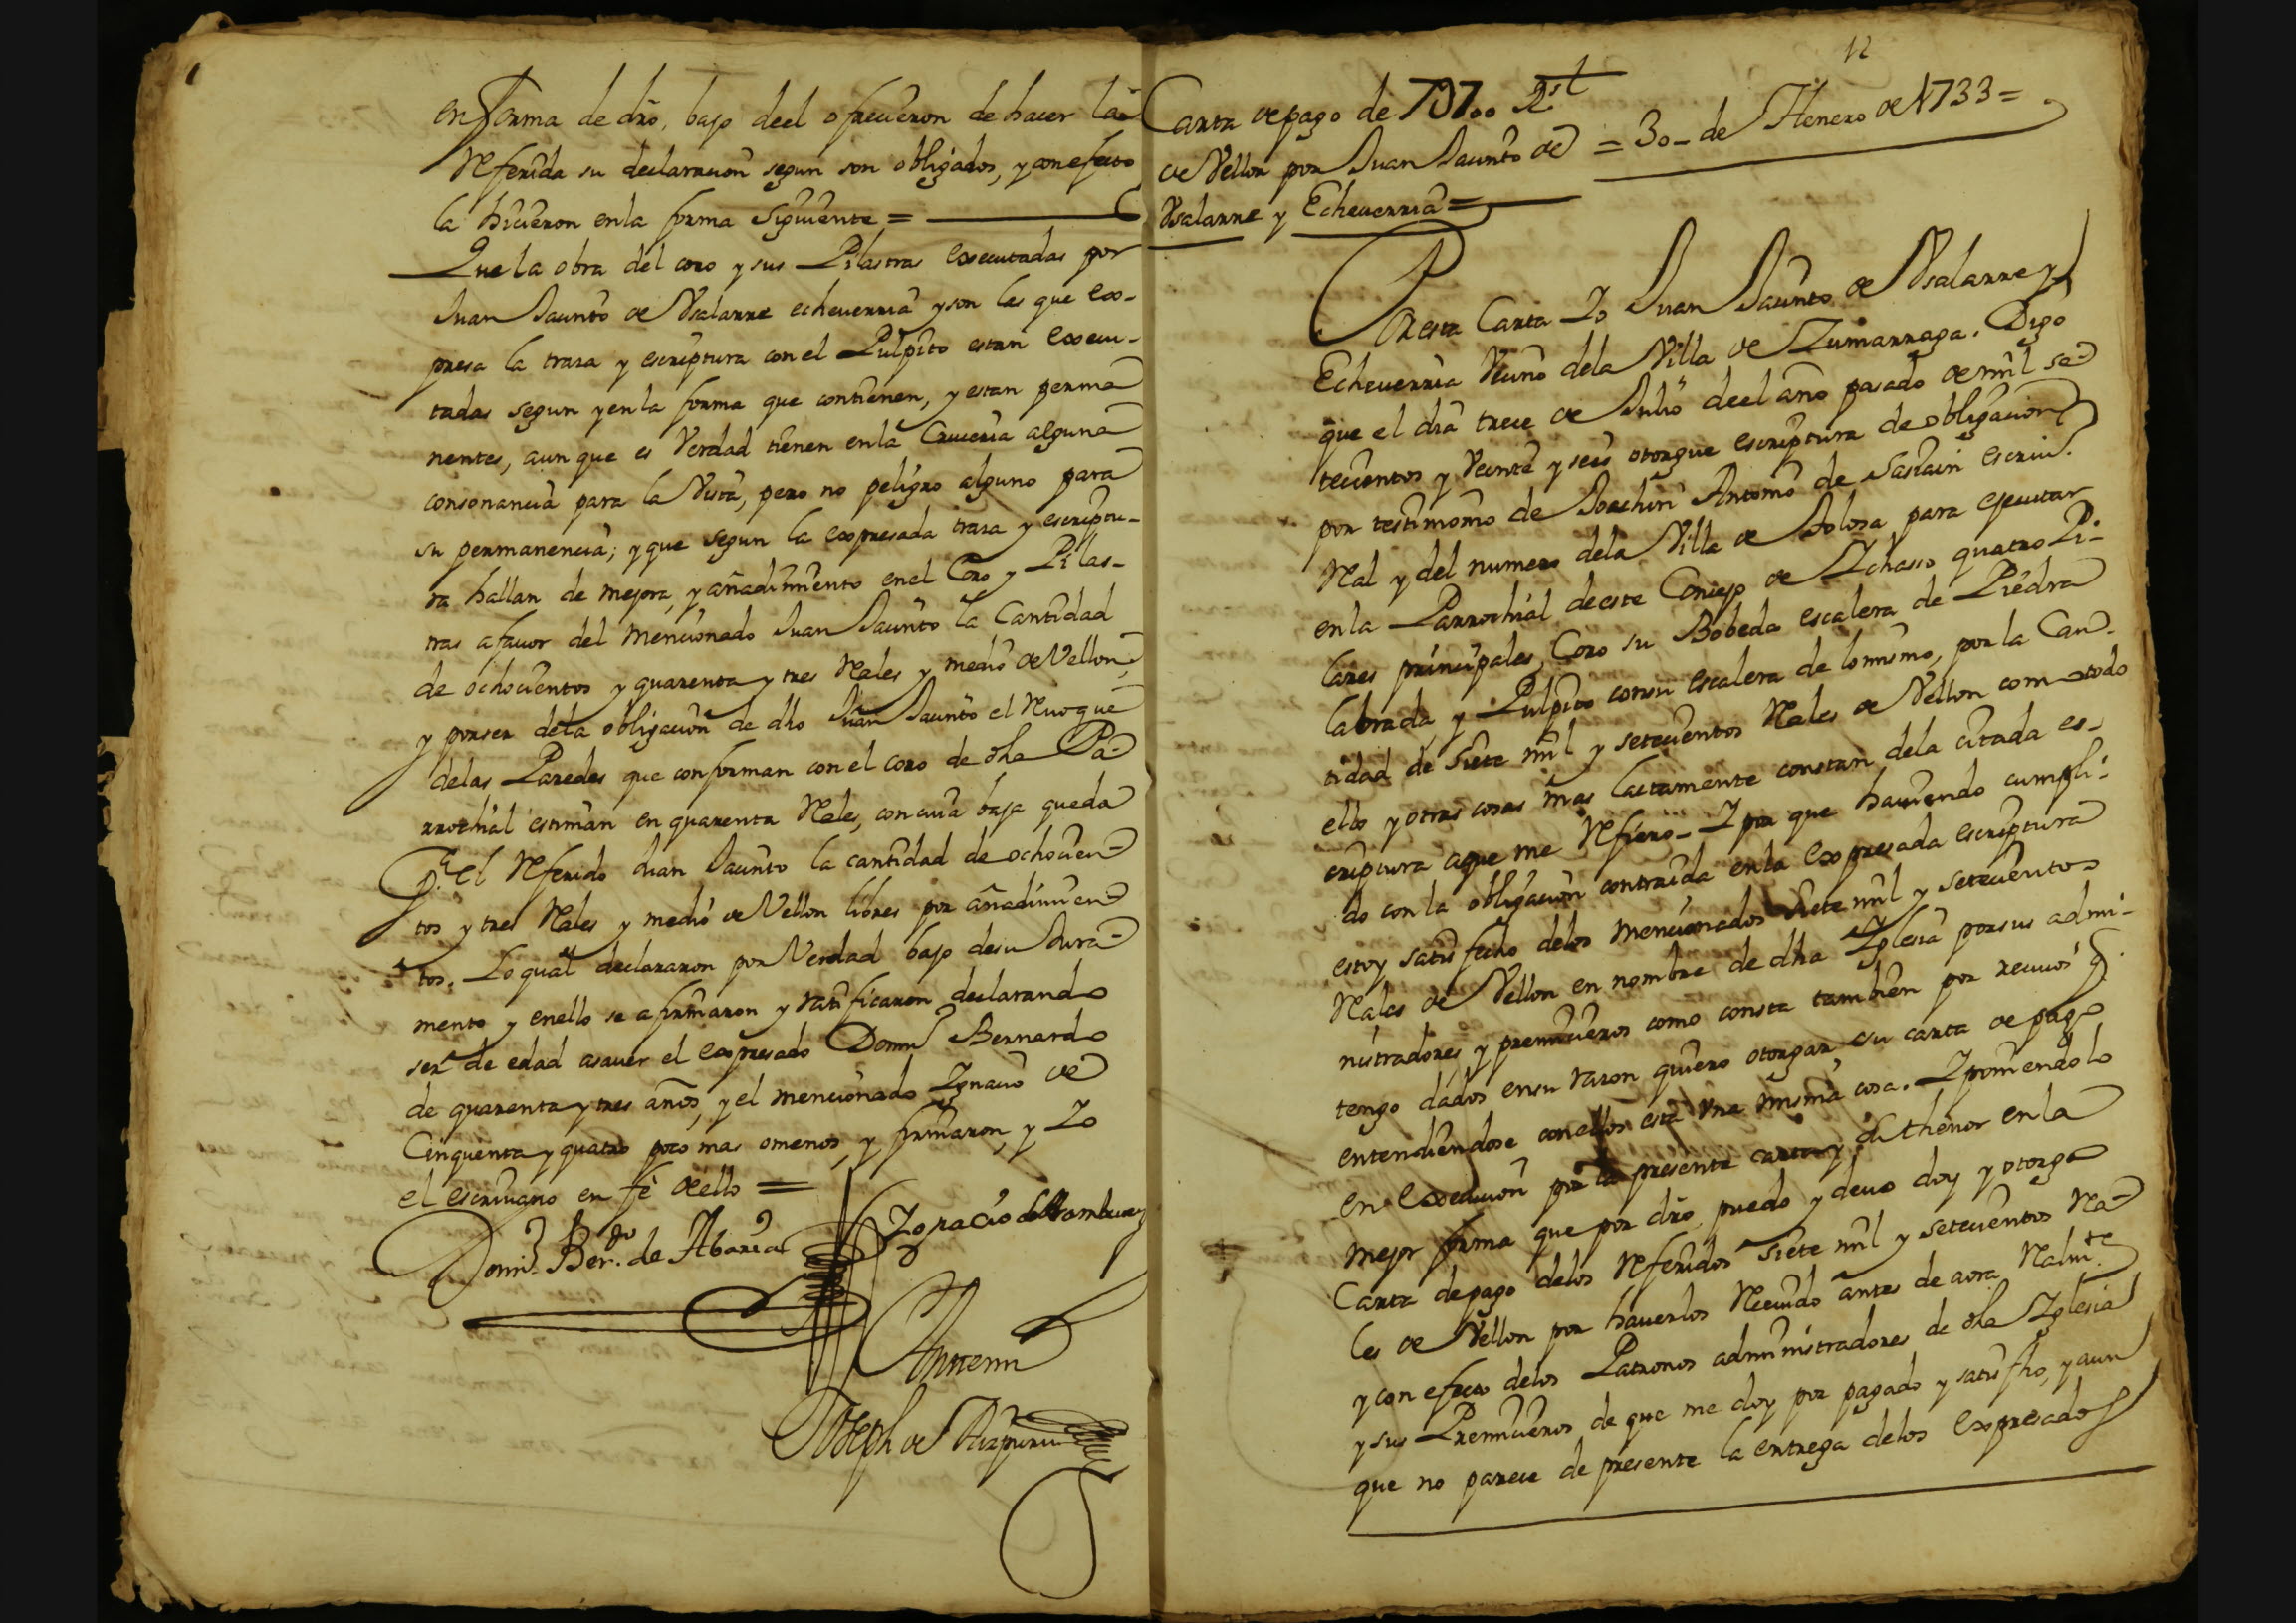 en forma de dro, bajo deel ofrecieron de hacer la
Referida su declaracion segun son obligados, y con efecto
la hicieron en la forma siguiente =
Que la obra del coro y sus Pilastras executadas por
Juan Jacinto de Vsalarre echeverria y son las que ex-
presa la traza y escriptura con el Pulpito estan execu-
tadas segun y en la forma que contienen, y estan perma
nentes, aunque es Verdad tienen en la Cruceria alguna
consonancia para la Vista, pero no peligro alguno para
su permanencia; y que segun la expresada traza y escriptu-
ra hallan de mejora, y añadimiento en el Coro y Pilas-
tras a favor del mencionado Juan Jacinto la Cantidad
de ochocientos y quarenta y tres Rales y medio de Vellon,
y por ser dela obligacion de dho Juan Jacinto el
delas Paredes que conforman con el coro de dha Pa-
rrochial estiman en quarenta Rales, con cuia baja queda
el Referido Juan Jacinto la cantidad de ochocien-
tos y tres Rales y medio de Vellon libres por añadimien-
tos. Lo qual declararon por Verdad bajo de su Jura-
mento y en ello se afirmaron y ratificaron declarando
ser de edad a saver el expresado Domin Bernardo
de quarenta y tres años, y el mencionado Ignacio de
Cinquenta y quatro poco mas o menos, y firmaron, y Yo
el escrivano en fe de ello =
Domin Ber.do de Abaria
Ignacio de
Antemi
Joseph de Aizpuru
12
Carta de pago de 7U700 Rl
de Vellon por Juan Jacinto de = 30 - de Henero de 1733 =
Vsalarre y Echeverria =
Por esta Carta Yo Juan Jacinto de Vsalarre y
Echeverria Vecino dela Villa de Zumarraga. Digo
que el dia trece de Julio deel año pasado de mil se
tecientos y Veinte y seis otorgue escriptura de obligacion
por testimonio de Joachin Antonio de Sastain escriv.
Real y del numero dela Villa de Tolosa para ejecutar
en la Parrochial de este Concejo de Ychasso quatro Pi-
lares principales, Coro su Bobeda escalera de Piedra
labrada, y Pulpito con su escalera de lo mismo, por la Can-
tidad de siete mil y setecientos Rales de Vellon como todo
ello y otras cosas mas lactamente constan dela citada es-
criptura a que me Refiero - Y por que haviendo cumpli-
do con la obligacion contraida en la expresada escriptura
estoy satisfecho delos mencionados siete mil y setecientos
Rales de Vellon en nombre de dha Yglesia por sus admi-
nistradores, y premicieros como consta tambien por recivos q.
tengo dados en su razon quiero otorgar su carta de pago
entendiendose con ellos esta una misma cosa. Y poniendolo
en execucion por la presente carta y su thenor en la
mejor forma que por dro puedo y devo doy y otorgo
Carta de pago delos Referidos siete mil y setecientos Ra-
les de Vellon por haverlos Recivido antes de aora Ralmte
y con efecto delos Patronos administradores de dha Yglesia
y sus Premicieros de que me doy por pagado y satisfho, y aun
que no parece de presente la entrega delos expresados